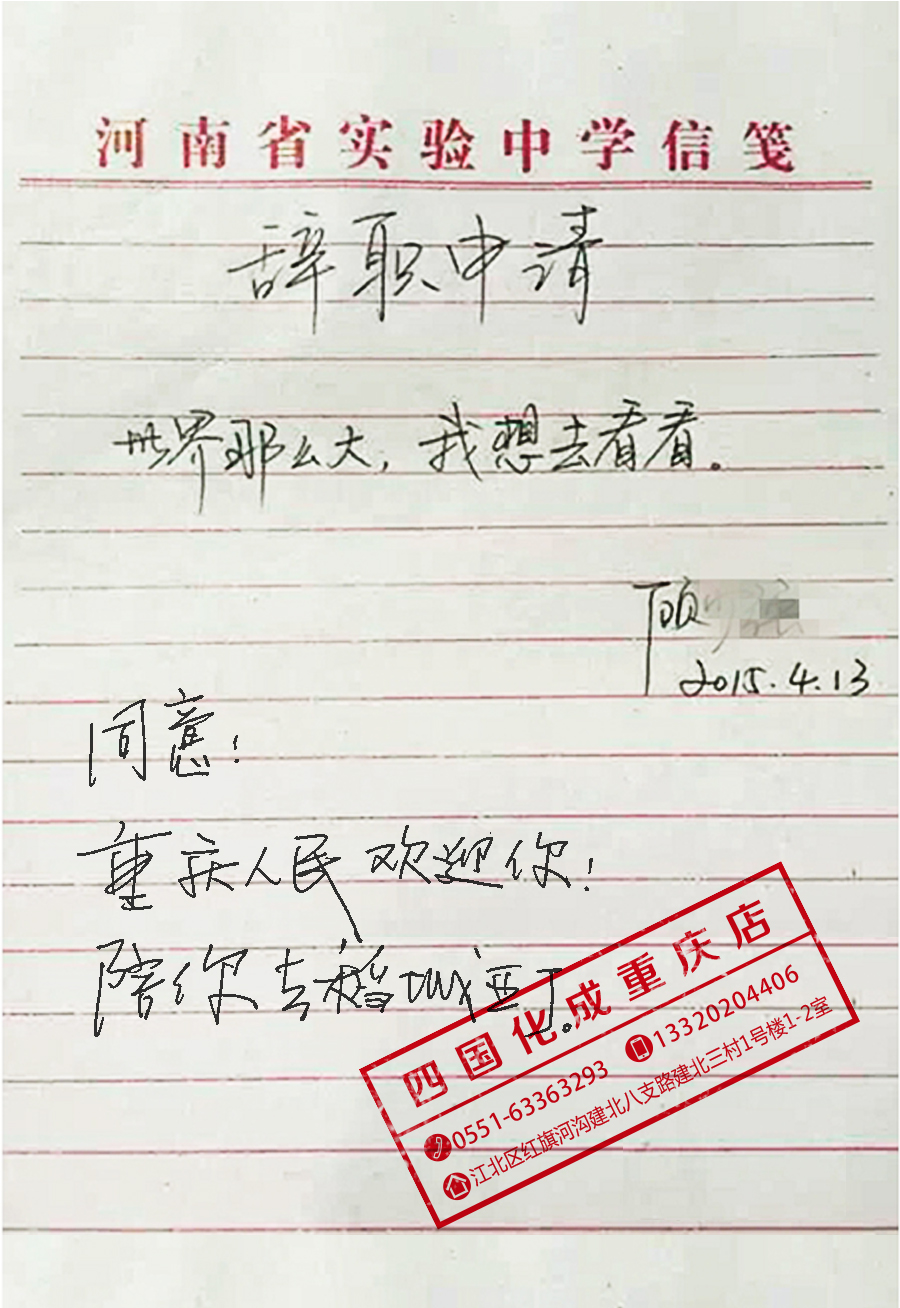 河南省实验中学信笺
辞职申请
世界那么大，我想去看看。
顾
2015.4.13
同意！
重庆人民欢迎你！
陪你去稻城亚丁。
四国化成重庆店
0551-63363293 13320204406
江北区红旗河沟建北八支路建北三村1号楼1-2室